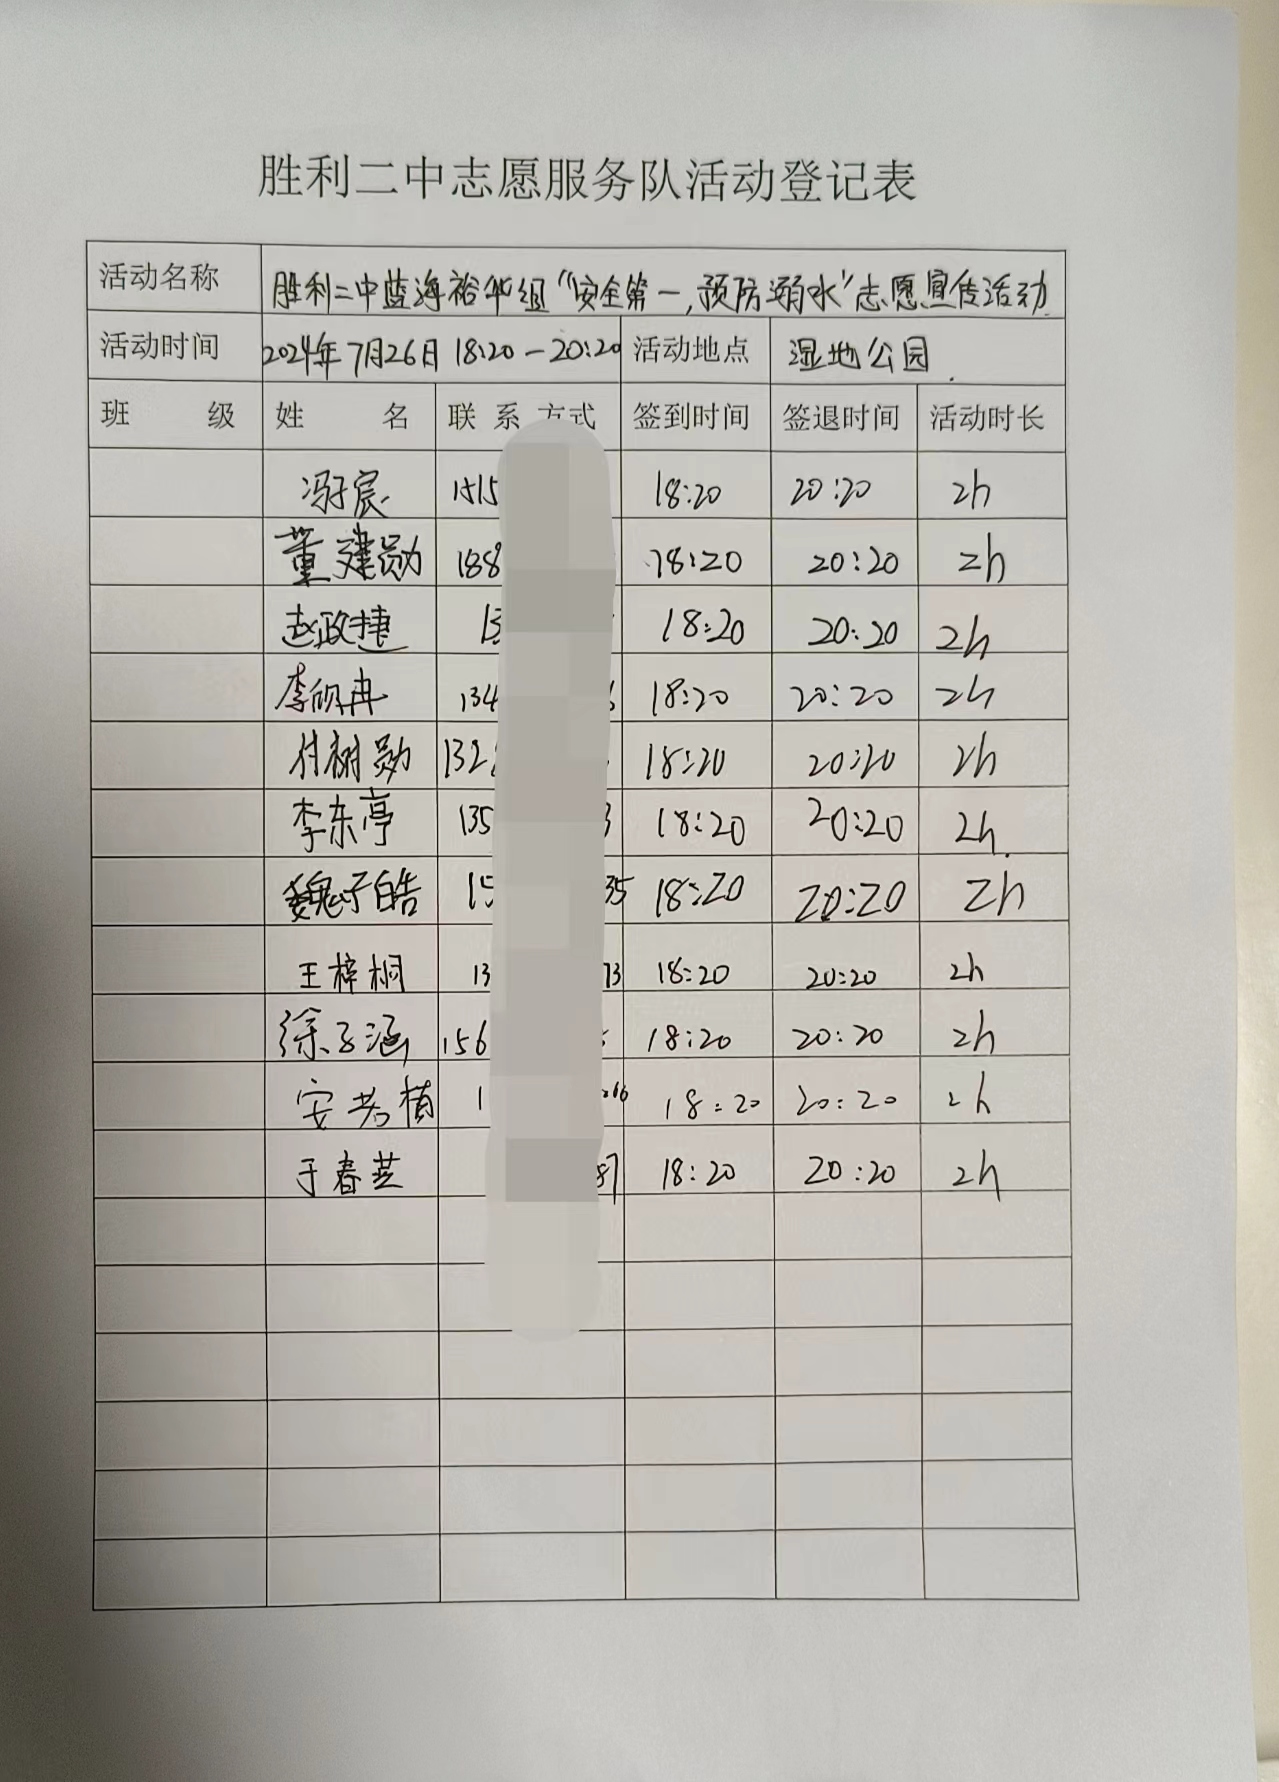 胜利二中志愿服务队活动登记表
活动名称 胜利二中蓝海裕华组“安全第一,预防溺水”志愿宣传活动
活动时间 2024年7月26日 18:20-20:20 活动地点 湿地公园.
班 级 姓 名 联 系 方式 签到时间 签退时间 活动时长
冯子宸 1515 18:20 20:20 2h
董建勋 188 18:20 20:20 2h
赵政捷 13 18:20 20:20 2h
李欣冉 134 18:20 20:20 2h
付树勋 132 18:20 20:20 2h
李东亭 135 3 18:20 20:20 2h.
魏子皓 15 35 18:20 20:20 2h
王梓桐 13 73 18:20 20:20 2h
徐子涵 156 18:20 20:20 2h
安 1 18:20 20:20 2h
于春芝 87 18:20 20:20 2h